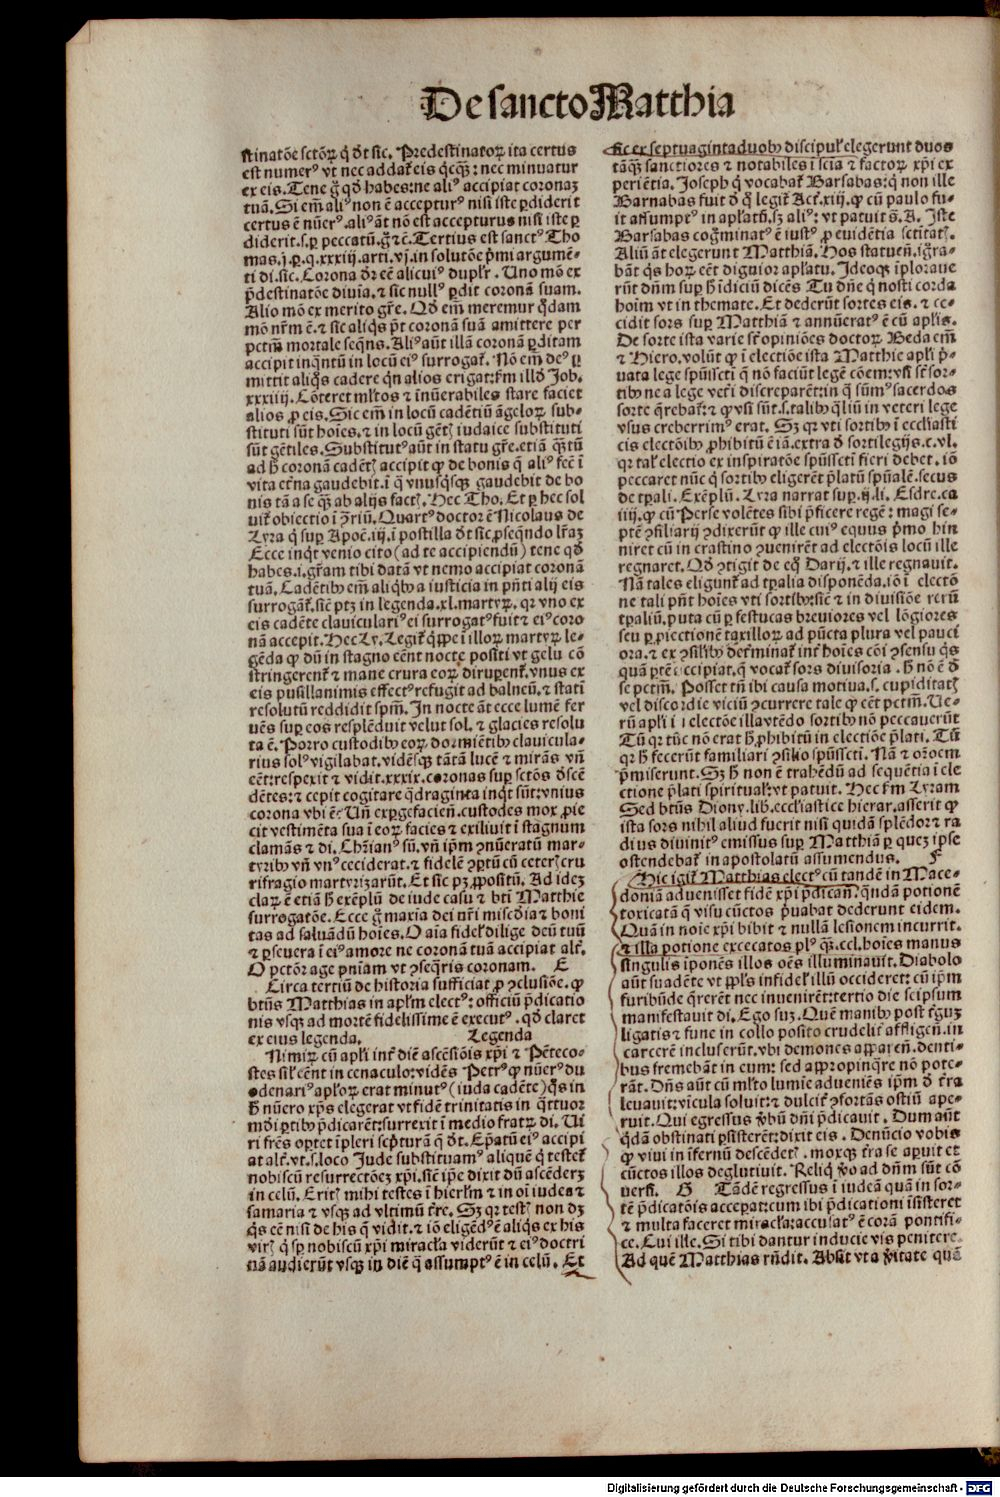 De sancto Matthia
stinatōe sctōꝝ q̇ dt̄ sic. Predestinatoꝝ ita certus
est numerꝰ vt nec addat᷑ eis q̇cꝙ̄: nec minuatur
ex eis. Tene g̊ qd̓ habes: ne aliꝰ accipiat coronaꝫ
tuā. Si em̄ aliꝰ non ē accepturꝰ nisi iste perdiderit
certus ē nūerꝰ. aliꝰ āt nō est accepturus nisi iste ꝑ
diderit. s. ꝑ peccatū. gͣ ⁊c̄. Tertius est sanctꝰ Tho
mas. j. ꝑ. q. xxxiij. arti. vj. in solutōe p̄mi argumē-
ti di. sic. Corona dr̄ eē alicuiꝰ duplr̄. Uno mō ex
p̄destinatōe diuīa. ⁊ sic nullꝰ ꝑdit coronā suam.
Alio mō ex merito gr̄e. Qd̓ em̄ meremur q̇dam
mō nr̄m ē. ⁊ sic aliq̇s pt̄ coronā suā amittere per
pctm̄ mortale seqn̄s. Aliꝰ aūt illā coronā ꝑditam
accipit inq̄ntū in locū eiꝰ surrogat᷑. Nō em̄ deꝰ ꝑ
mittit aliq̇s cadere qn̄ alios erigat: ẜm illd̓ Job.
xxxiiij. Cōteret ml̓tos ⁊ īnūerabiles stare faciet
alios ꝓ eis. Sic em̄ in locū cadētiū āgeloꝝ sub-
stituti sūt hoīes. ⁊ in locū gētꝭ iudaice substituti
sūt gētiles. Substitutꝰ aūt in statu gr̄e. etiā q̄ꝫtū
ad h̓ coronā cadētꝭ accipit ꝙ de bonis q̄ aliꝰ fec̄ ī
vita et̄na gaudebit. ī q̄ vnusq̇sꝗ gaudebit de bo
nis tā a se ꝙ̄ ab alijs factꝭ. Hec Tho. Et ꝑ hec sol
uit᷑ obiectio ī ꝯ̄riū. Quartꝰ doctor ē Nicolaus de
Lyra q̇ suꝑ Apoc̄. iij. ī postilla dt̄ sic, ꝓseq̄ndo lr̄aꝫ
Ecce inqt̄ venio cito (ad te accipiendū) tene qd̓
habes. i. gr̄am tibi datā vt nemo accipiat coronā
tuā. Cadētibꝰ em̄ aliq̇bꝰ a iusticia in pn̄ti alij eis
surrogāt᷑. sic̄ ptꝫ in legenda. xl. martyꝝ. qr vno ex
eis cadēte clauiculariꝰ ei surrogatꝰ fuit ⁊ eiꝰ coro
nā accepit. Hec Ly. Legit᷑ q̇ꝓpe ī illoꝝ martyꝝ le-
gēda ꝙ dū in stagno eēnt nocte positi vt gelu cō
stringerent᷑ ⁊ mane crura eoꝝ dirupent᷑. vnus ex
eis pusillanimis effectꝰ refugit ad balneū. ⁊ statī
resolutū reddidit spm̄. In nocte āt ecce lumē fer
uēs suꝑ eos resplēduit velut sol. ⁊ glacies resolu
ta ē. Porro custodibꝰ eoꝝ dormiētibꝰ clauicula-
rius solꝰ vigilabat. vidēsꝗ tātā lucē ⁊ mirās vn̄
eēt: respexit ⁊ vidit. xxxix. coronas suꝑ sctōs d̓scē
dētes: ⁊ cepit cogitare q̄draginta inqt̄ sūt: vnius
corona vbi ē. Un̄ exꝑgefacien̄. custodes mox ꝓie
cit vestimēta sua ī eoꝝ facies ⁊ exiliuit ī stagnum
clamās ⁊ di. Chr̄ianꝰ sū. vn̄ ip̄m ꝯnūeratū mar-
tyribꝰ vn̄ vnꝰ ceciderat. ⁊ fidelē ꝯꝑtū cū ceterꝭ cru
rifragio martyrizarūt. Et sic pꝫ ꝓpositū. Ad ideꝫ
claꝝ ē etiā h̓ exēplū de iude casu ⁊ bti̓ Matthie
surrogatōe. Ecce g̊ maxīa dei nr̄i misc̄dia ⁊ boni
tas ad saluādū hoīes. O aīa fidel̓ dilige deū tuū
⁊ ꝑseuera ī eiꝰ amore ne coronā tuā accipiat alt᷑.
O pctōr age pnīam vt ꝯseq̄ris coronam. E
Circa tertiū de historia sufficiat ꝓ ꝯclusiōe. ꝙ
btūs Matthias in apl̓m electꝰ: officiū p̄dicatio
nis vsꝗ ad mortē fidelissime ē executꝰ. qd̓ claret
ex eius legenda. Legenda
Nimiꝝ cū apl̓i int᷑ diē ascēsiōis xp̄i ⁊ Pētēco-
stes sil̓ eēnt in cenaculo: vidēs Petrꝰ ꝙ nūerꝰ du
odenariꝰ apl̓oꝝ erat minutꝰ (iuda cadēte) q̇s in
h̓ nūero xp̄s elegerat vt fidē trinitatis in q̄ttuor
mūdi ꝑtibꝰ p̄dicarēt: surrexit ī medio fratꝝ di. Ui
ri fr̄es oꝑtet īpleri sc̓pturā q̄ dt̄. Ep̄atū eiꝰ accipi
at alt᷑. vt. s. loco Jude substituamꝰ aliquē q̇ testet᷑
nobiscū resurrectōeꝫ xp̄i. sic̄ ip̄e dixit dū ascēderꝫ
in celū. Eritꝭ mihi testes ī hierl̓m ⁊ in oī iudea ⁊
samaria ⁊ vsꝗ ad vltimū t̓re. Sꝫ qr testꝭ non dꝫ
q̇s eē nisi de his q̄ vidit. ⁊ iō eligēdꝰ ē aliq̇s ex his
virꝭ q̇ sp̄ nobiscū xp̄i miracl̓a viderūt ⁊ eiꝰ doctri
nā audierūt vsꝗ in diē q̄ assumptꝰ ē in celū. Et
sic ex septuagintaduobꝰ discipul̓ elegerunt duos
tāꝗ̄ sanctiores ⁊ notabiles ī scīa ⁊ factoꝝ xp̄i ex
periētia. Joseph q̇ vocabat᷑ Barsabas: q̇ non ille
Barnabas fuit d̓ q̊ legit᷑ Act. xiij. ꝙ cū paulo fu-
it assumptꝰ in apl̓atū. sꝫ aliꝰ: vt patuit s̄. A. Iste
Barsabas cog̊minatꝰ ē iustꝰ ꝓ euidētia sc̄titatꝭ.
Aliū āt elegerunt Matthiā. Hos statuen̄. igͣra-
bāt q̇s hoꝝ eēt dignior apl̓atu. Ideoꝗ īploraue
rūt dn̄m suꝑ h̓ idiciū dicēs Tu dn̄e q̇ nosti corda
hoīm vt in themate. Et dederūt sortes eis. ⁊ ce-
cidit sors suꝑ Matthiā ⁊ annūeratꝰ ē cū apl̓is.
De sorte ista varie st̄ opiniōes doctoꝝ. Beda em̄
⁊ Hiero. volūt ꝙ ī electiōe ista Matthie apl̓i p̓-
uata lege spūsscti̓ q̄ nō faciūt legē cōem: vsi st̄ sor-
tibꝰ ne a lege vet̓i discreparēt: in q̄ sūmꝰ sacerdos
sorte q̄rebat᷑: ⁊ ꝙ vsi sūt. s. talibꝰ q̄liū in veteri lege
vsus creberrimꝰ erat. Sꝫ qr vti sortibꝰ ī eccl̓iasti
cis electōibꝰ ꝓhibitū ē iā. extra d̓ sortilegijs. c. vl.
qr tal̓ electio ex inspiratōe spūsscti̓ fieri debet. iō
peccaret nūc q̇ sortibꝰ eligeret p̄latū spūalē. secus
de tpali. Exēplū. Lyra narrat suꝑ. ij. li. Esdre. ca
iiij. ꝙ cū Perse volētes sibi p̄ficere regē: magi se-
ptē ꝯsiliarij ꝯdixerūt ꝙ ille cuiꝰ equus p̓mo hin
niret cū in crastino ꝯuenirēt ad electōis locū ille
regnaret. Qd̓ ꝯtigit de eq̊ Darij. ⁊ ille regnauit.
Nā tales eligunt᷑ ad tꝑalia disponēda. iō ī electō
ne tali pn̄t hoīes vti sortibꝰ: sic̄ ⁊ in diuisiōe rerū
tꝑaliū. puta cū ꝑ festucas breuiores vel lōgiores
seu ꝑ ꝓiectionē taxilloꝝ ad pūcta plura vel pauci
ora. ⁊ ex ꝯsilibꝰ det̓minat᷑ int᷑ hoīes cōi ꝯsensu q̇s
quā ꝑtē accipiat. q̄ vocat᷑ sors diuisoria. h̓ nō ē d̓
se pctm̄. Posset tn̄ ibi causa motiua. s. cupiditatꝭ
vel discordie viciū ꝯcurrere tale ꝙ eēt pctm̄. Ue-
rū apl̓i ī electōe illa vtēdo sortibꝰ nō peccauerūt
Tū qr tūc nō erat h̓ ꝓhibitū in electiōe p̄lati. Tū
qr h̓ fecerūt familiari ꝯsilio spūsscti̓. Nā ⁊ or̄oem
p̄miserunt. Sꝫ h̓ non ē trahēdū ad sequētia ī ele
ctione p̄lati spiritual̓: vt patuit. Hec ẜm Lyram
Sed btūs Diony. lib. eccl̓iastice hierar. asserit ꝙ
ista sors nihil aliud fuerit nisi quidā splēdor ⁊ ra
dius diuinitꝰ emissus suꝑ Matthiā ꝑ quez ipse
ostendebat᷑ in apostolatū assumendus. F
Hic igit᷑ Matthias electꝰ cū tandē in Mace-
doniā aduenisset fidē xp̄i p̄dican̄. q̄ndā potionē
toxicatā q̄ visu cūctos p̓uabat dederunt eidem.
Quā in noīe xp̄i bibit ⁊ nullā lesionem incurrit.
⁊ illa potione excecatos plꝰ ꝙ̄. ccl. hoīes manus
singulis īponēs illos oēs illuminauit. Diabolo
aūt suadēte vt ppl̓s infidel̓ illū occideret: cū ip̄m
furibūde q̄rerēt nec inuenirēt: tertio die seipsum
manifestauit di. Ego suꝫ. Quē manibꝰ post t̓guꝫ
ligatis ⁊ fune in collo posito crudelit᷑ affligen̄. in
carcerē incluserūt. vbi demones apparen̄. denti-
bus fremebāt in eum: sed appropinq̄re nō pote-
rāt. Dn̄s aūt cū ml̓to lumīe adueniēs ip̄m d̓ t̓ra
leuauit: vīcula soluit: ⁊ dulcit᷑ ꝯfortās ostiū ape-
ruit. Qui egressus v̓bū dn̄i p̄dicauit. Dum aūt
q̇dā obstinati ꝑsisterēt: dixit eis. Denūcio vobis
ꝙ viui in īfernū descēdetꝭ. moxꝗ t̓ra se aperuit et
cūctos illos deglutiuit. Reliq̇ v̓o ad dn̄m sūt cō
uersi. G Tādē regressus ī iudeā quā in sor-
tē p̄dicatōis acceꝑat: cum ibi p̄dicationi īsisteret
⁊ multa faceret miracl̓a: accusatꝰ ē corā pontifi-
ce. Cui ille. Si tibi dantur inducie vis penitere.
Ad quē Matthias rn̄dit. Absit vt a v̓itate quā
Digitalisierung gefördert durch die Deutsche Forschungsgemeinschaft - DFG